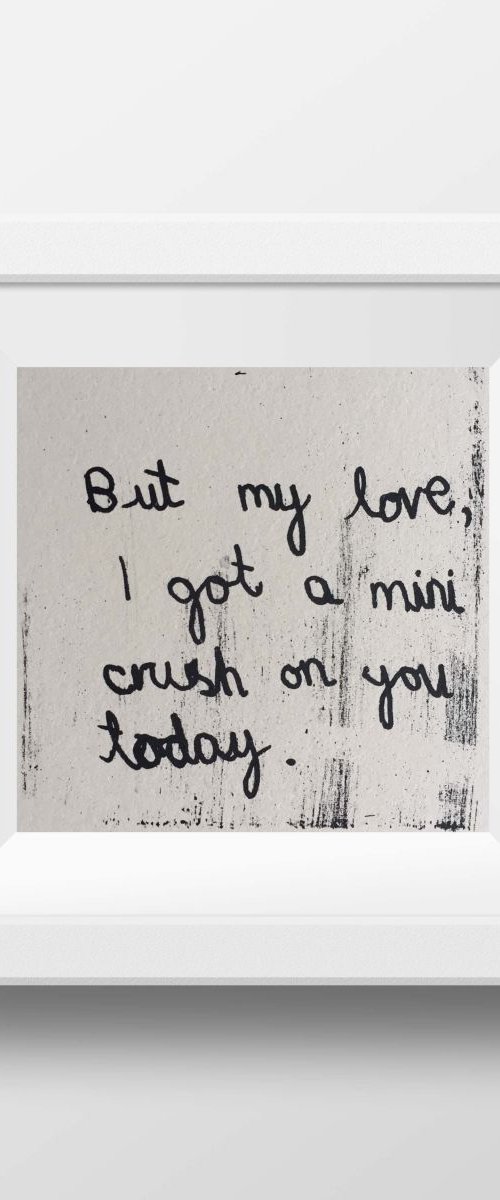 But my love,
I got a mini
crush on you
today.